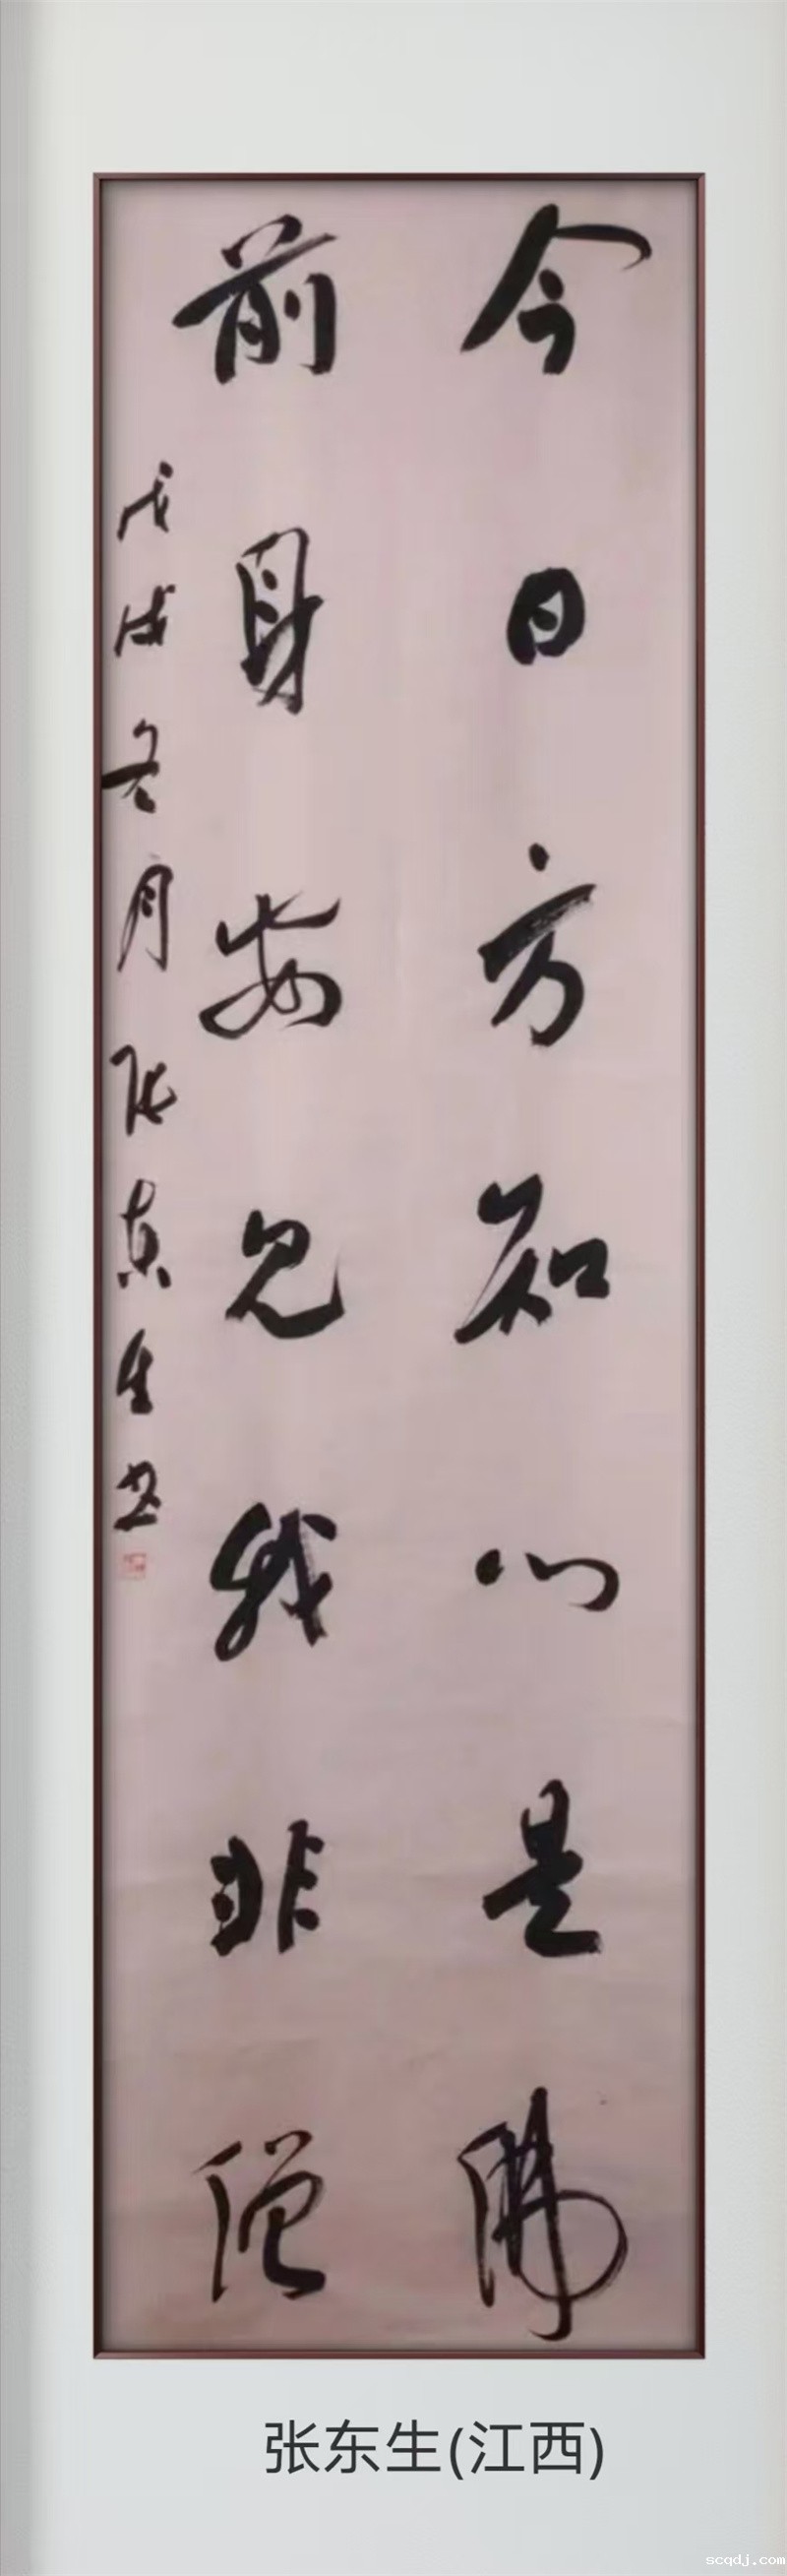 今日方知心是佛
前身安见我非僧
戊戌冬月张东生书
张东生(江西)
scqdj.com